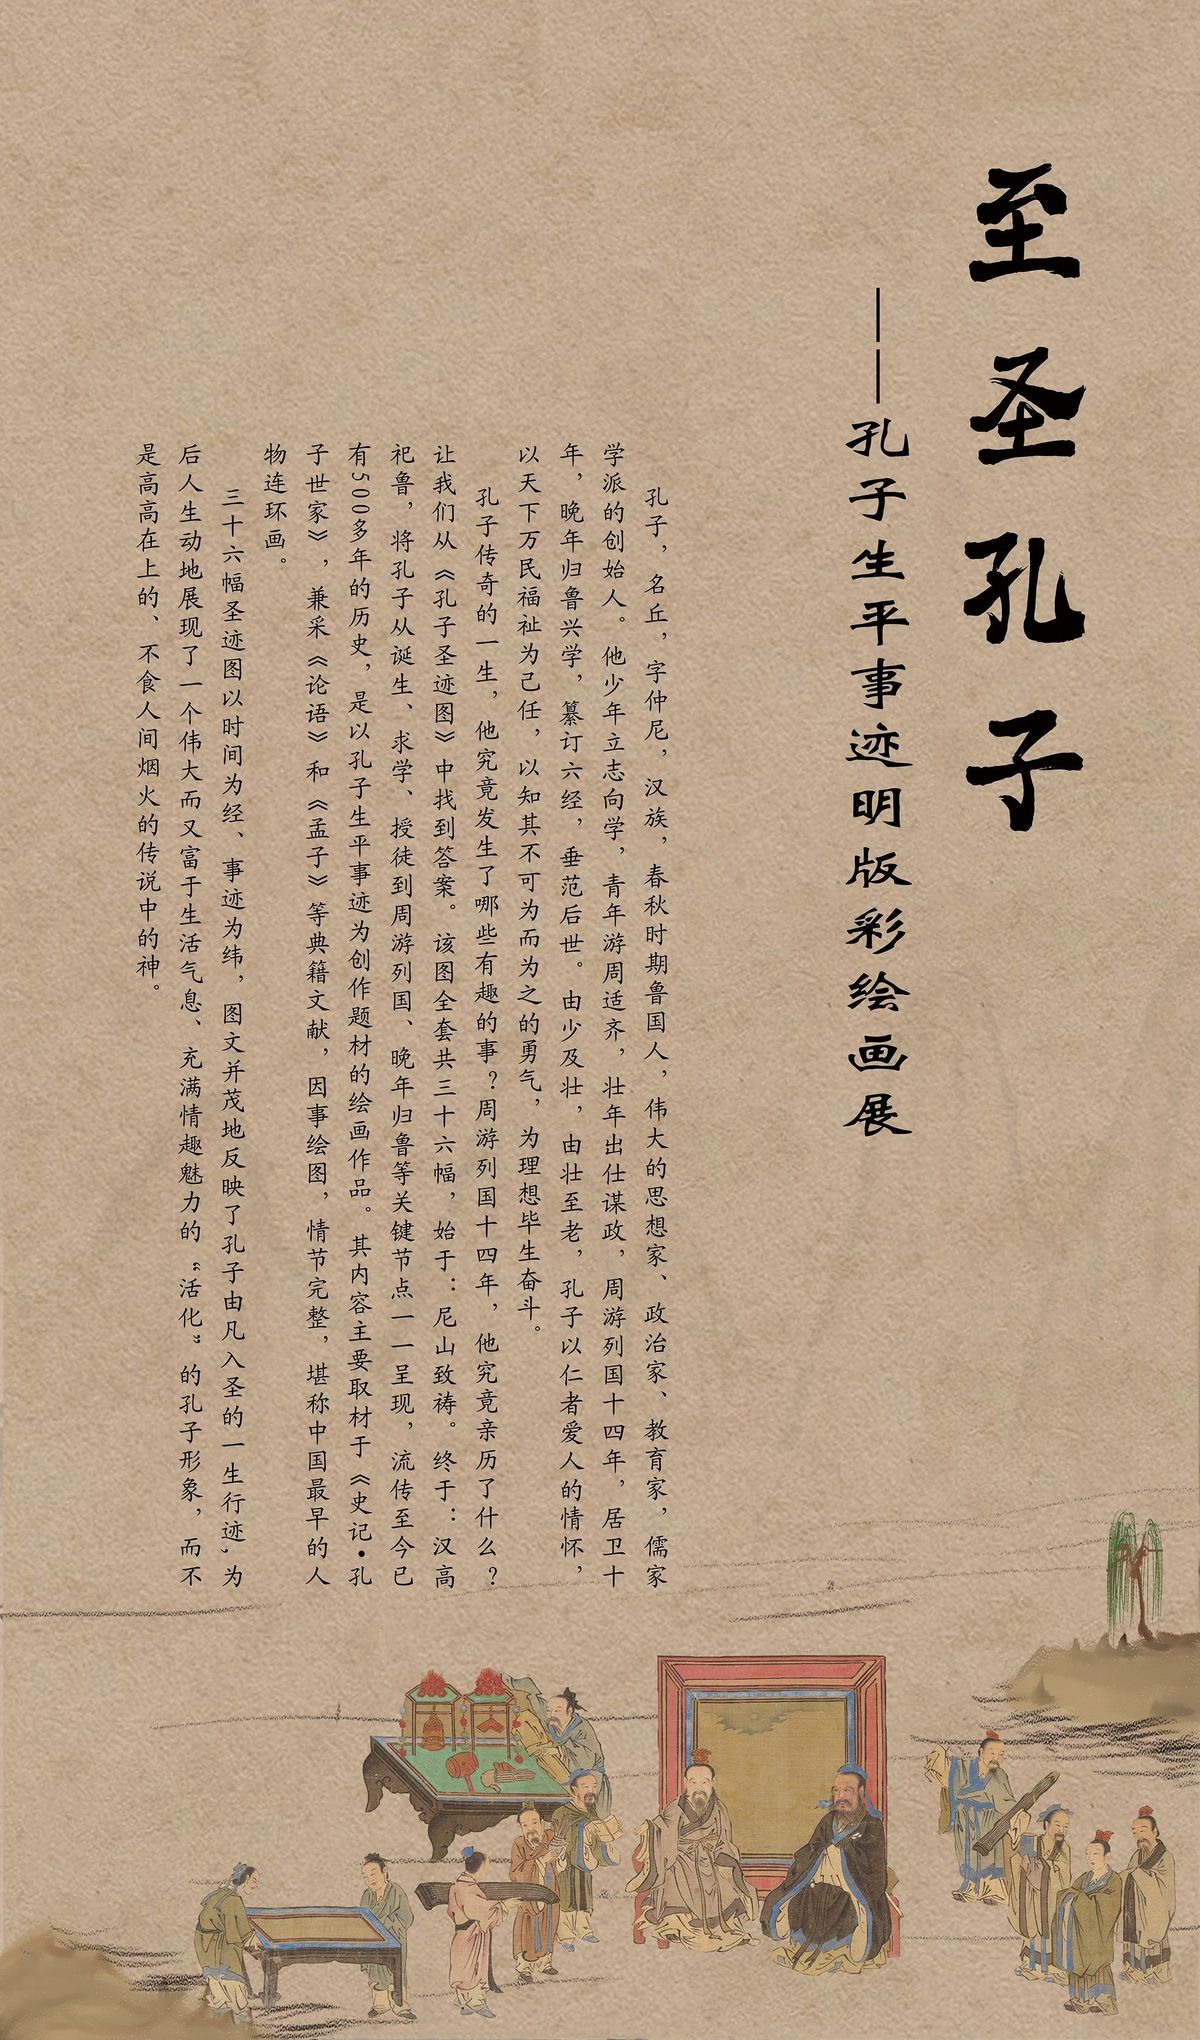 至圣孔子
——孔子生平事迹明版彩绘画展
孔子，名丘，字仲尼，汉族，春秋时期鲁国人，伟大的思想家、政治家、教育家，儒家
学派的创始人。他少年立志向学，青年游周适齐，壮年出仕谋政，周游列国十四年，居卫十
年，晚年归鲁兴学，纂订六经，垂范后世。由少及壮，由壮至老，孔子以仁者爱人的情怀，
以天下万民福祉为己任，以知其不可为而为之的勇气，为理想毕生奋斗。
孔子传奇的一生，他究竟发生了哪些有趣的事？周游列国十四年，他究竟亲历了什么？
让我们从《孔子圣迹图》中找到答案。该图全套共三十六幅，始于：尼山致祷。终于：汉高
祀鲁，将孔子从诞生、求学、授徒到周游列国、晚年归鲁等关键节点一一呈现，流传至今已
有500多年的历史，是以孔子生平事迹为创作题材的绘画作品。其内容主要取材于《史记·孔
子世家》，兼采《论语》和《孟子》等典籍文献，因事绘图，情节完整，堪称中国最早的人
物连环画。
三十六幅圣迹图以时间为经、事迹为纬，图文并茂地反映了孔子由凡入圣的一生行迹,为
后人生动地展现了一个伟大而又富于生活气息、充满情趣魅力的“活化”的孔子形象，而不
是高高在上的、不食人间烟火的传说中的神。